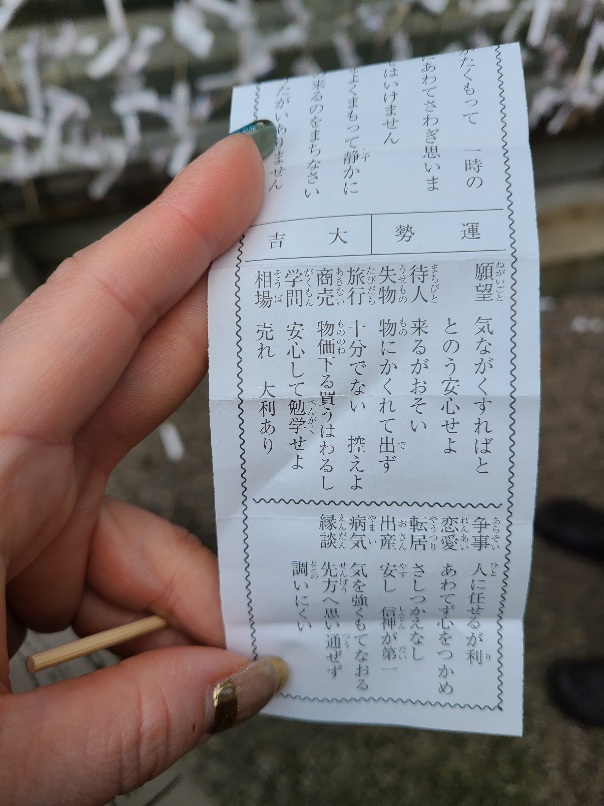 たくもって　一時の
あわてさわぎ思いま
はいけません
くまもって静かに
来るのをまちなさい
運勢　大吉
願望　気ながくすればと
とのう安心せよ
待人　来るがおそい
失物　物にかくれて出ず
旅行　十分でない　控えよ
商売　物価下る買うはわるし
学問　安心して勉学せよ
相場　売れ　大利あり
争事　人に任せるが利
恋愛　あわてず心をつかめ
転居　さしつかえなし
出産　安し　信神が第一
病気　気を強くもてなおる
縁談　先方へ思い通ぜず
調いにくい